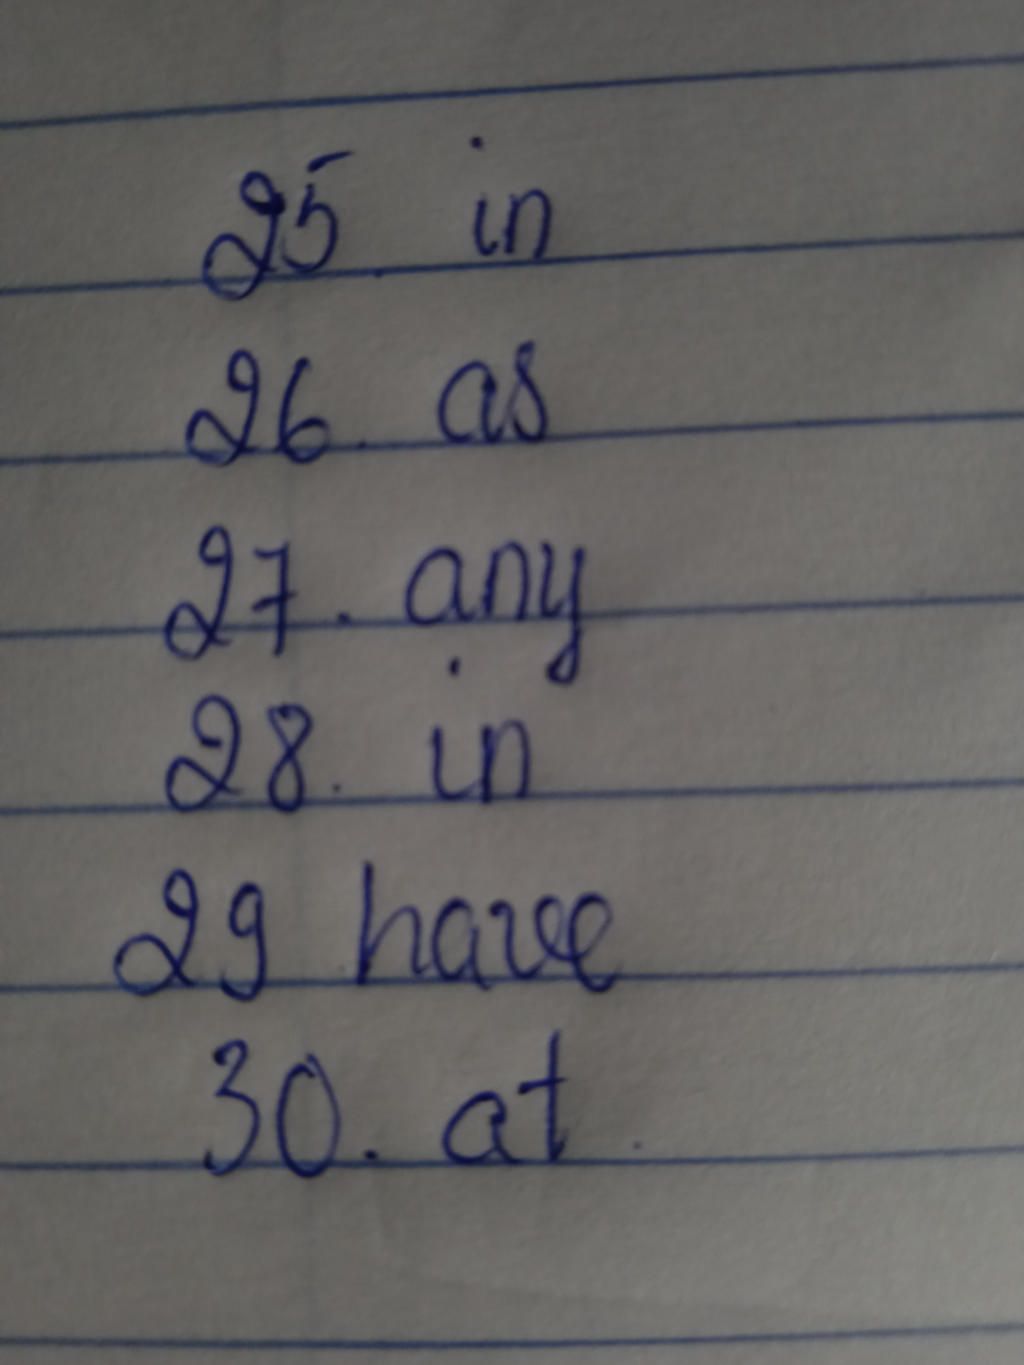 25. in
26. as
27. any
28. in
29 have
30. at